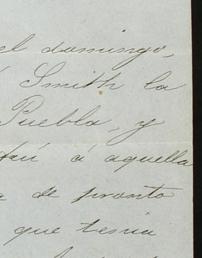 el domingo,
Smith la
Puebla, y
á aquella
de pronto
que tenia